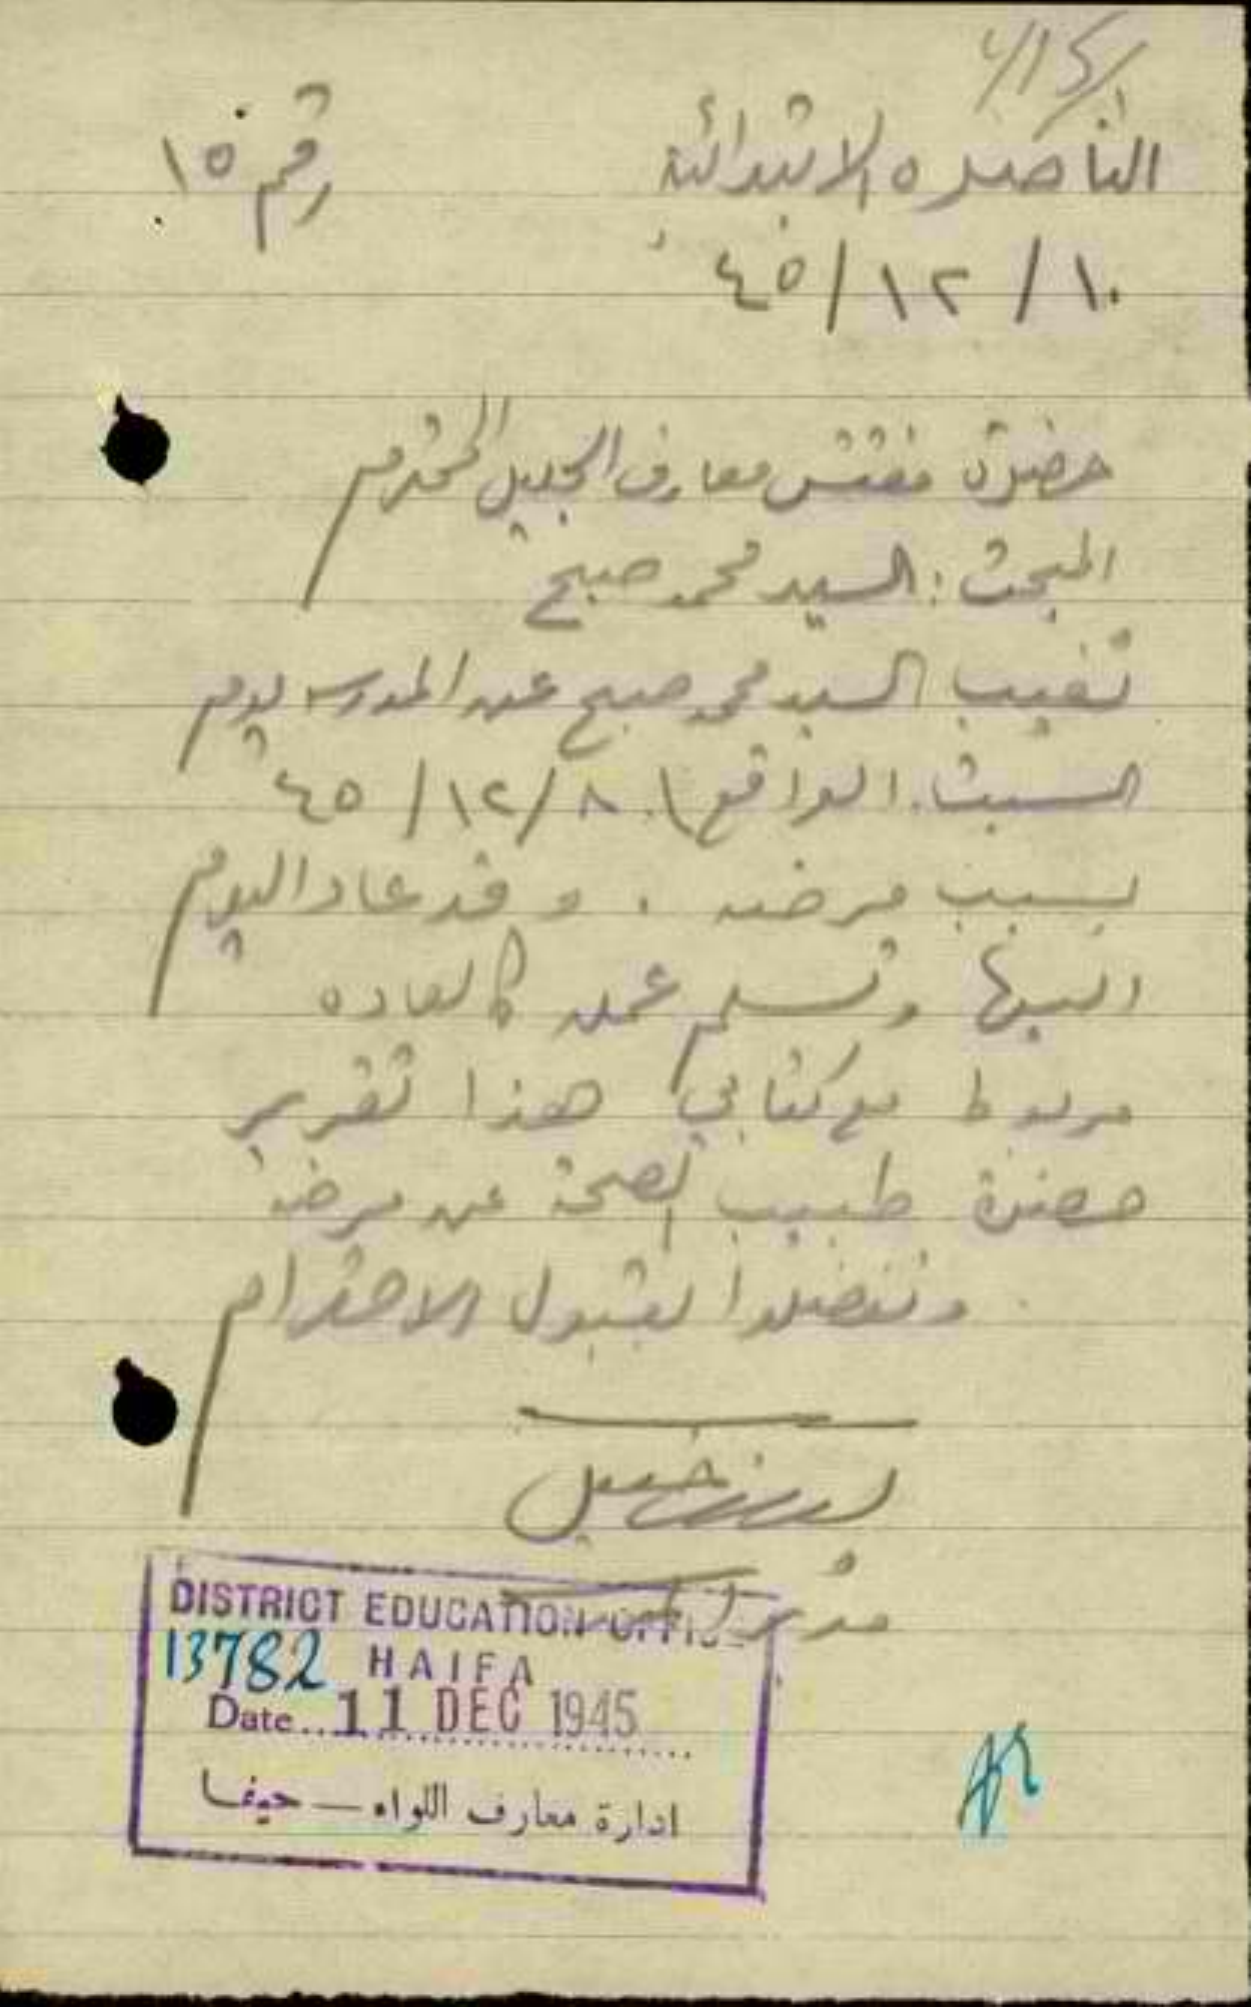 الناصره الابتدائية
رقم ١٥
١٠/١٢/٤٥
حضرة مفتش معارف الجليل المحترم
المبحث: السيد محمد صبح
تغيب السيد محمد صبح عن المدرسه يوم
السبت الواقع ٨/١٢/٤٥
بسبب مرضه. وقد عاد اليوم
اليها وتسلم عمله كالعاده
مربوط مع كتابي هذا تقرير
حضرة طبيب الصحة عن مرضه
وتفضلوا بقبول الاحترام
مدير المدرسه
DISTRICT EDUCATION OFFICE
13782 HAIFA
Date 11 DEC 1945
ادارة معارف اللواء — حيفا